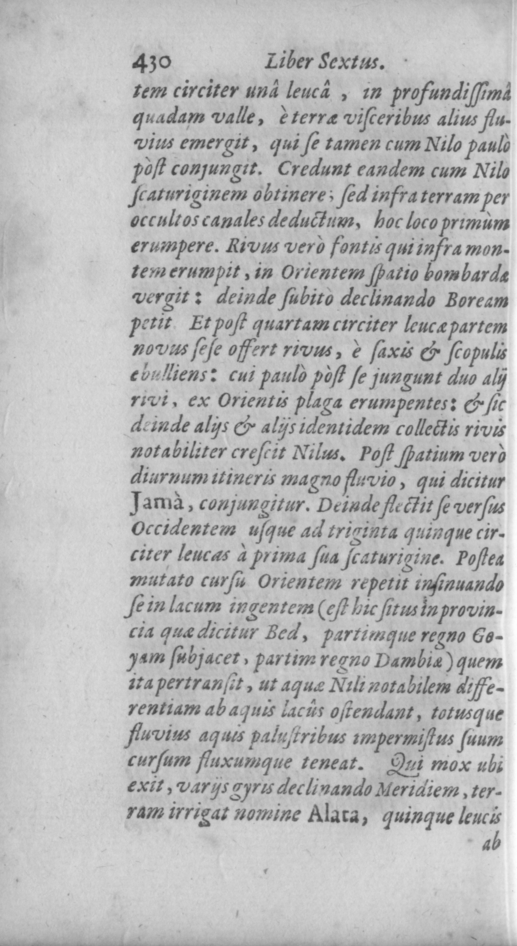 430 Liber Sextus.
tem circiter unâ leucâ , in profundiſſimâ
quadam valle, è terræ viſceribus alius flu-
vius emergit, qui ſe tamen cum Nilo paulò
pòſt conjungit. Credunt eandem cum Nilo
ſcaturiginem obtinere; ſed infra terram per
occultos canales deductum, hoc loco primùm
erumpere. Rivus verò fontis qui infra mon-
tem erumpit, in Orientem ſpatio bombardæ
vergit: deinde ſubitò declinando Boream
petit Et poſt quartam circiter leucæ partem
novus ſeſe offert rivus, è ſaxis & ſcopulis
ebulliens: cui paulò pòſt ſe jungunt duo alij
rivi, ex Orientis plaga erumpentes: & ſic
deinde alijs & alijs identidem collectis rivis
notabiliter creſcit Nilus. Poſt ſpatium verò
diurnum itineris magno fluvio, qui dicitur
Jamà, conjungitur. Deinde flectit ſe verſus
Occidentem uſque ad triginta quinque cir-
citer leucas à prima ſua ſcaturigine. Poſtea
mutato curſu Orientem repetit inſinuando
ſe in lacum ingentem (eſt hic ſitus in provin-
cia quæ dicitur Bed, partimque regno Go-
yam ſubjacet, partim regno Dambiæ) quem
ita pertranſit, ut aquæ Nili notabilem diffe-
rentiam ab aquis lacûs oſtendant, totusque
fluvius aquis paluſtribus impermiſtus ſuum
curſum fluxumque teneat. Qui mox ubi
exit, varijs gyris declinando Meridiem, ter-
ram irrigat nomine Alata, quinque leucis
ab